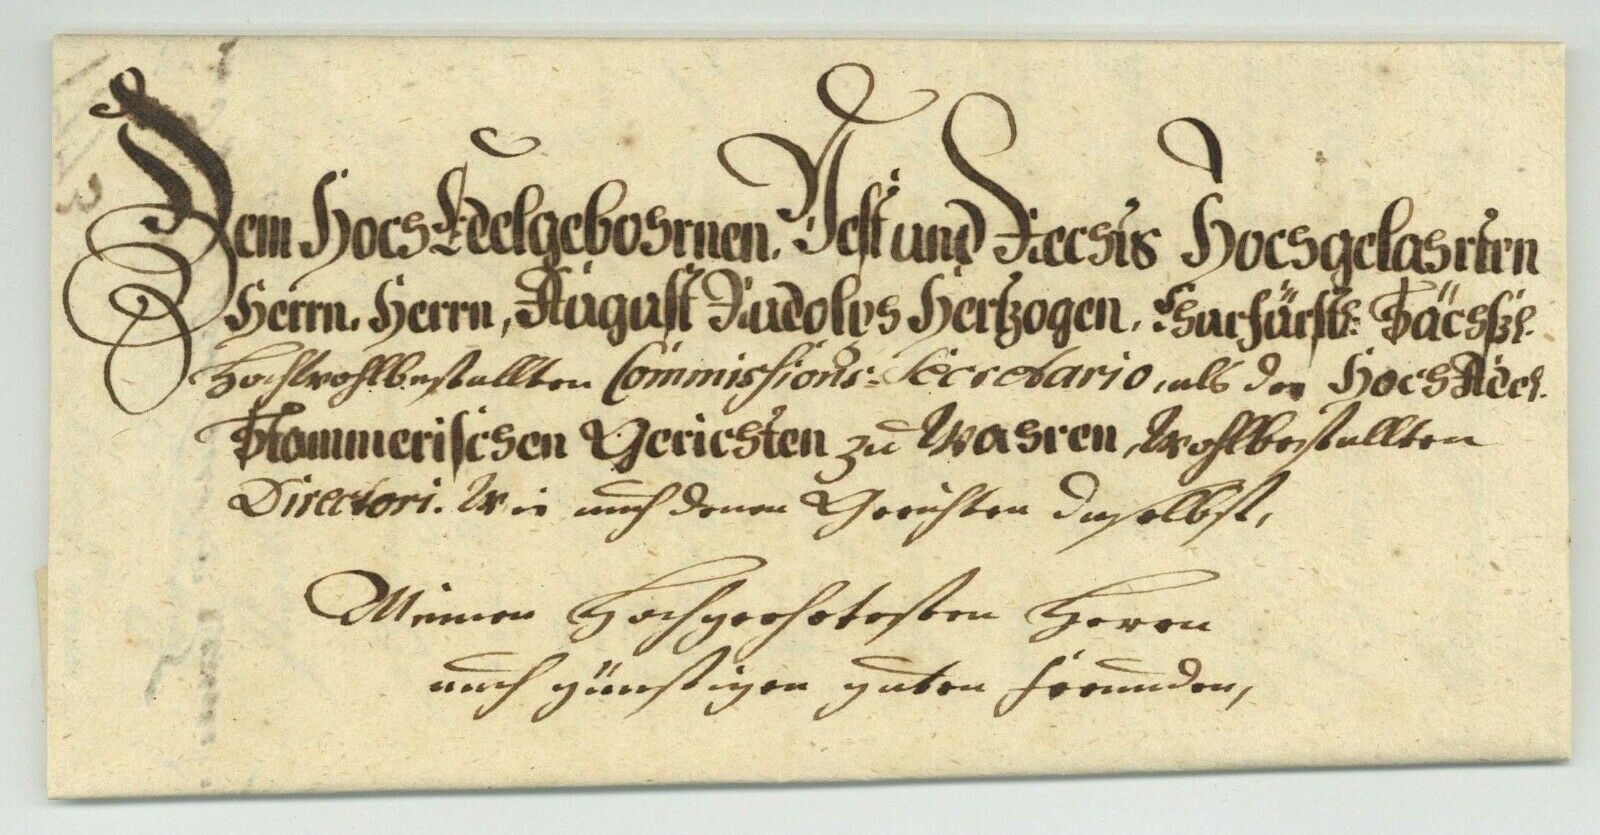 Dem HochEdelgebohrnen, Vest und Rechts Hochgelahrten
Herrn, Herrn, August Rudolph Hertzogen, Churfürstl: Sächßl.
Hochwohlbestallten Commissions-Secretario, als der HochAdel.
Stammerischen Gerichten zu Wahren, Wohlbestallten
Directori. Wie auch denen Gerichten daselbst,
Meinen Hochgeehrtesten Herrn
auch günstigen guten Freunden,